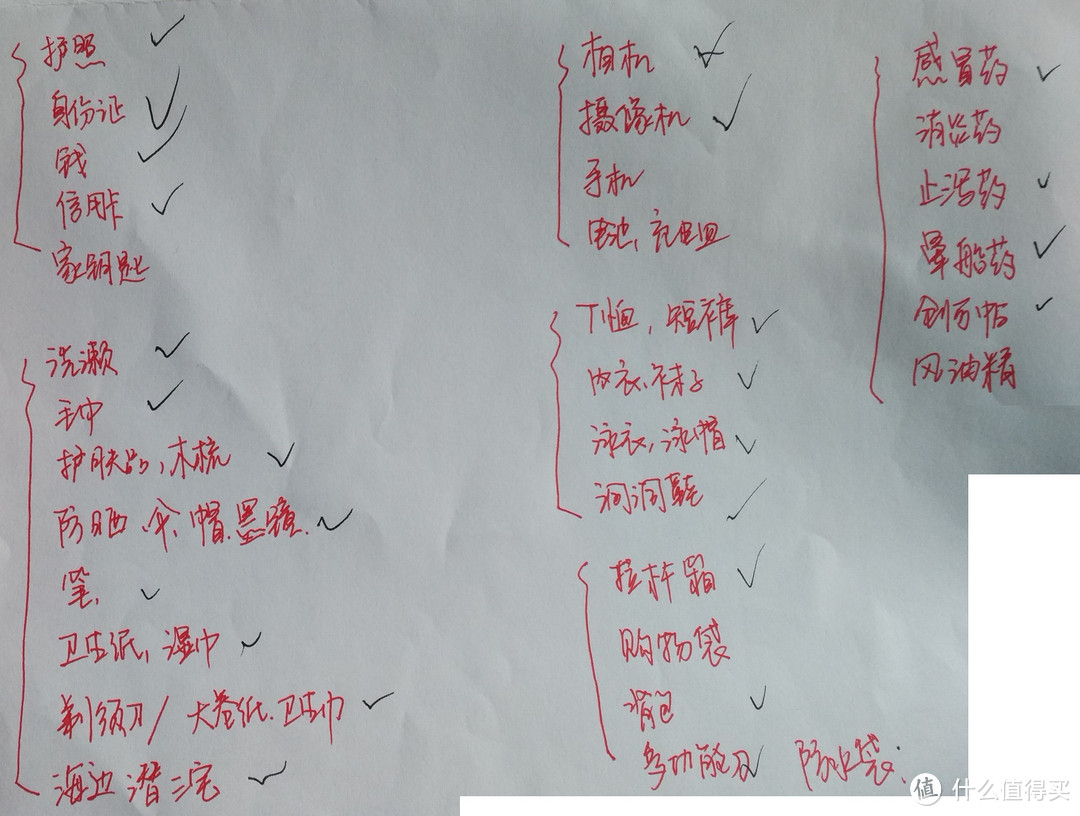 护照
身份证
钱
信用卡
家钥匙
洗漱
毛巾
护肤品,木梳
防晒、伞、帽、墨镜、
笔、
卫生纸,湿巾
剃须刀/大卷纸、卫生巾
海边潜三宝
相机
摄像机
手机
电池、充电宝
T恤,短裤
内衣、袜子
泳衣,泳帽
洞洞鞋
拉杆箱
购物袋
背包
多功能刀 防水袋:
感冒药
消炎药
止泻药
晕船药
创可帖
风油精
值 什么值得买